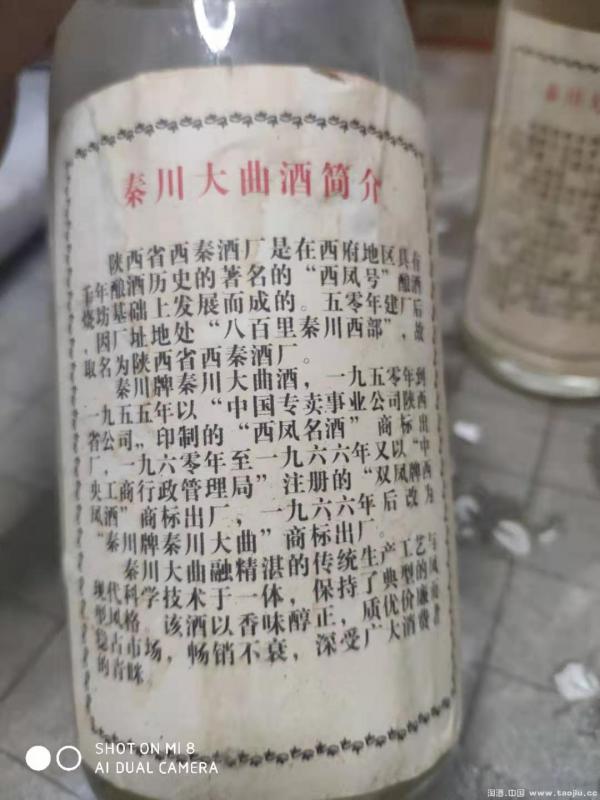 秦川大曲酒简介
陕西省西秦酒厂是在西府地区具有
千年酿酒历史的著名的“西凤号”酿酒
烧坊基础上发展而成的。五零年建厂后
，因厂址地处“八百里秦川西部”，故
取名为陕西省西秦酒厂。
秦川牌秦川大曲酒，一九五零年到
一九五五年以“中国专卖事业公司陕西
省公司”印制的“西凤名酒”商标出
厂，一九六零年至一九六六年又以“中
央工商行政管理局”注册的“双凤牌西
凤酒”商标出厂，一九六六年后改为
“秦川牌秦川大曲”商标出厂。
秦川大曲融精湛的传统生产工艺与
现代科学技术于一体，保持了典型的凤
型风格。该酒以香味醇正，质优价廉而
稳占市场，畅销不衰，深受广大消费者
的青睐
SHOT ON MI 8
AI DUAL CAMERA
淘酒.中国 www.taojiu.cc